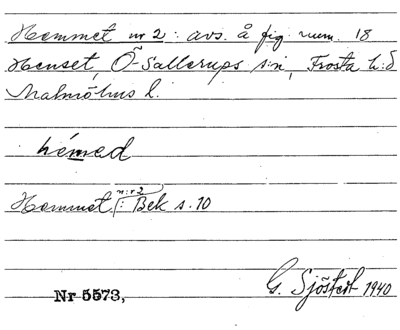 Hemmet nr 2 : avs. å fig. num. 18
Huset, Ö. Sallerups s:n, Frosta h:d
Malmöhus l.
hémed
n:r 2
Hemmet : Bek s. 10
G. Sjöstedt 1940
Nr 5573,